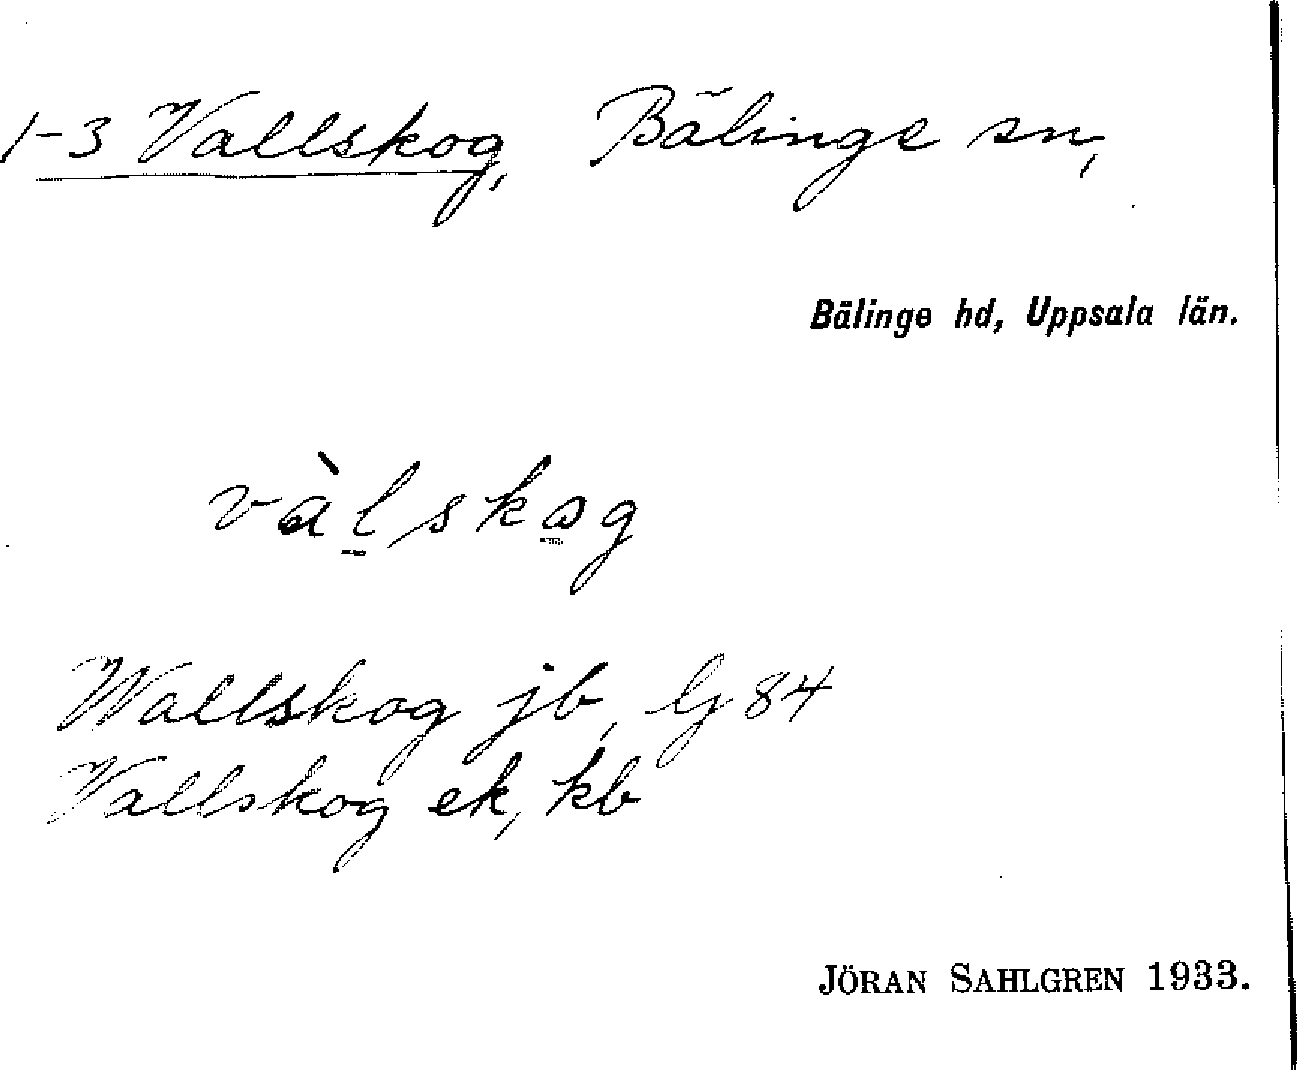 1-3 Vallskog, Bälinge sn,
Bälinge hd, Uppsala län.
vàl̲sko̲g
Wallskog jb, Gj 84
Vallskog ek, kb
JÖRAN SAHLGREN 1933.